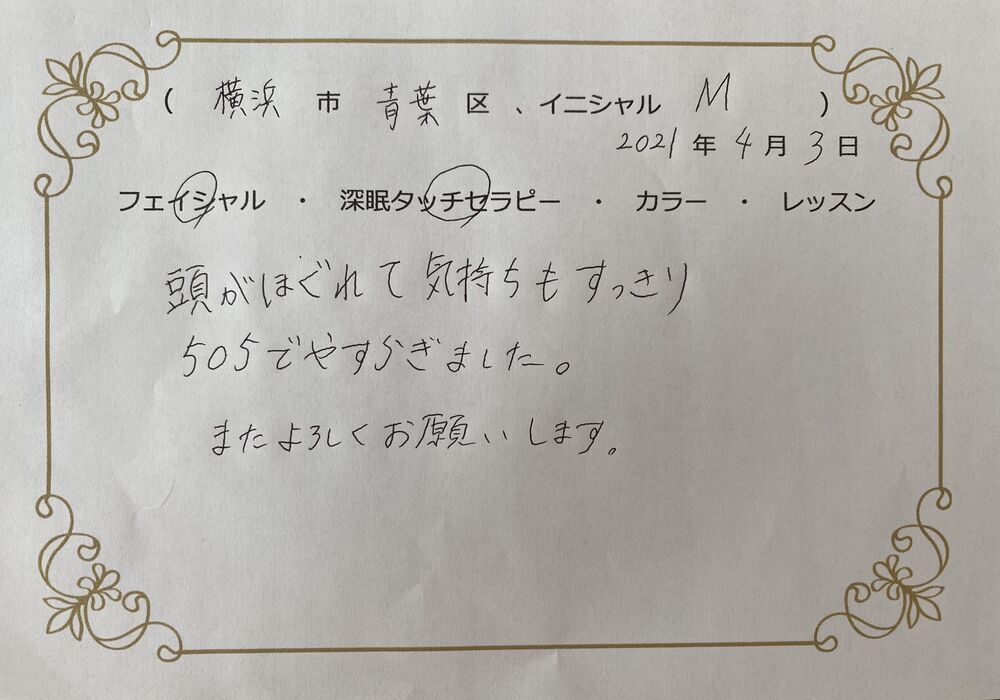 ( 横浜 市 青葉 区 、イニシャル M )
2021 年 4 月 3 日
フェイシャル ・ 深眠タッチセラピー ・ カラー ・ レッスン
頭がほぐれて気持ちもすっきり
505でやすらぎました。
またよろしくお願いします。